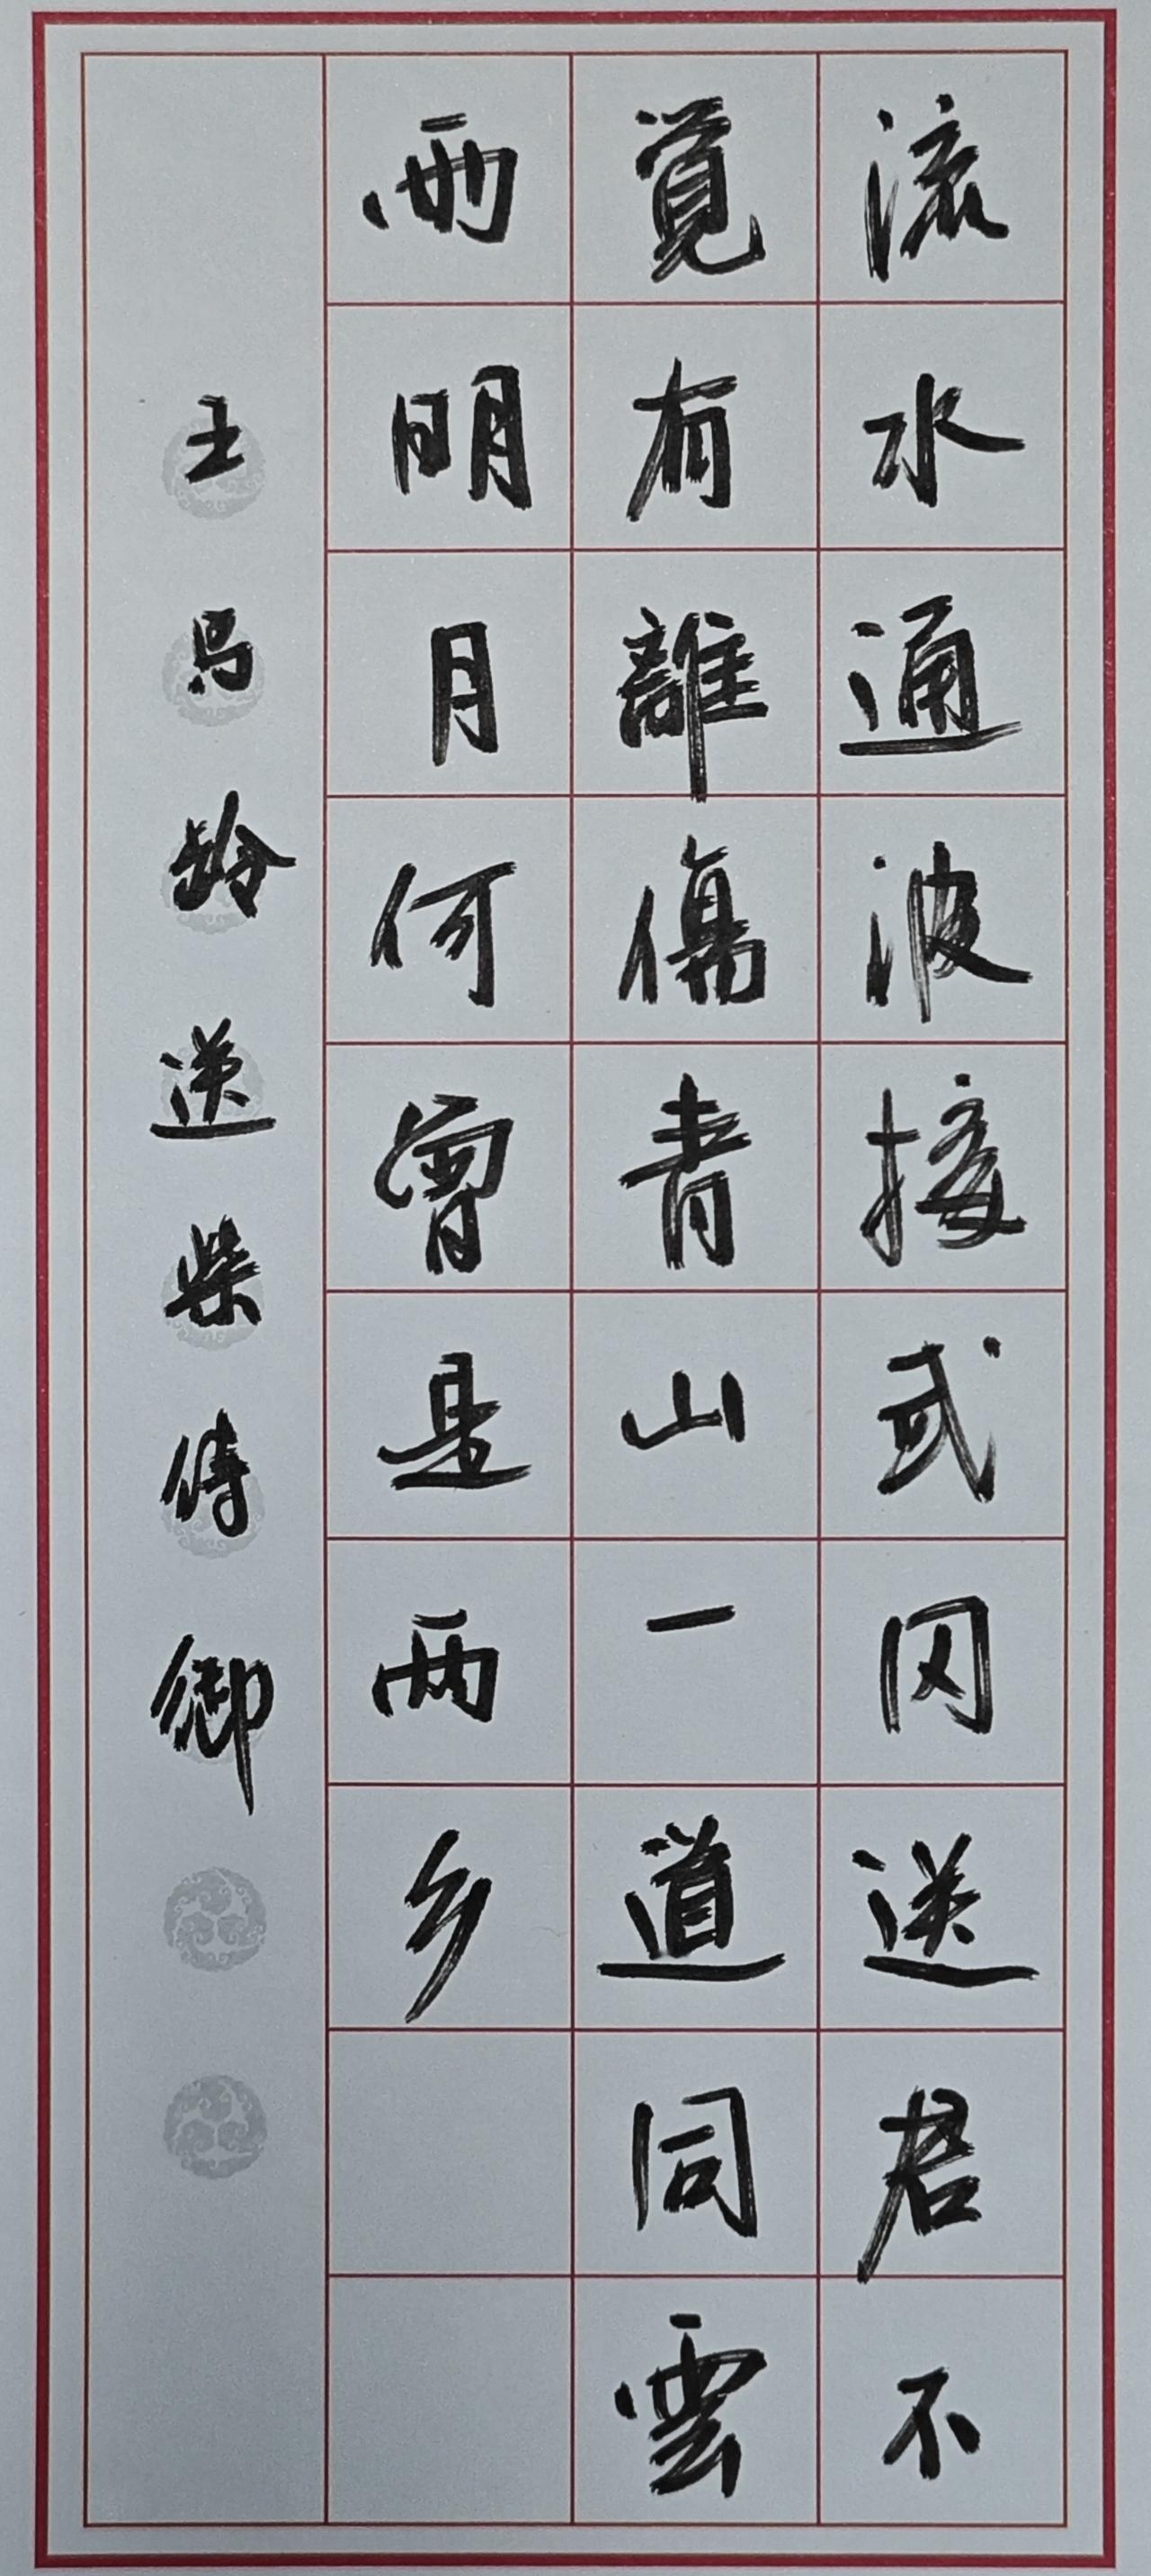 流水通波接武冈送君不
覺有離傷青山一道同雲
雨明月何曾是两乡
王昌龄送柴侍御